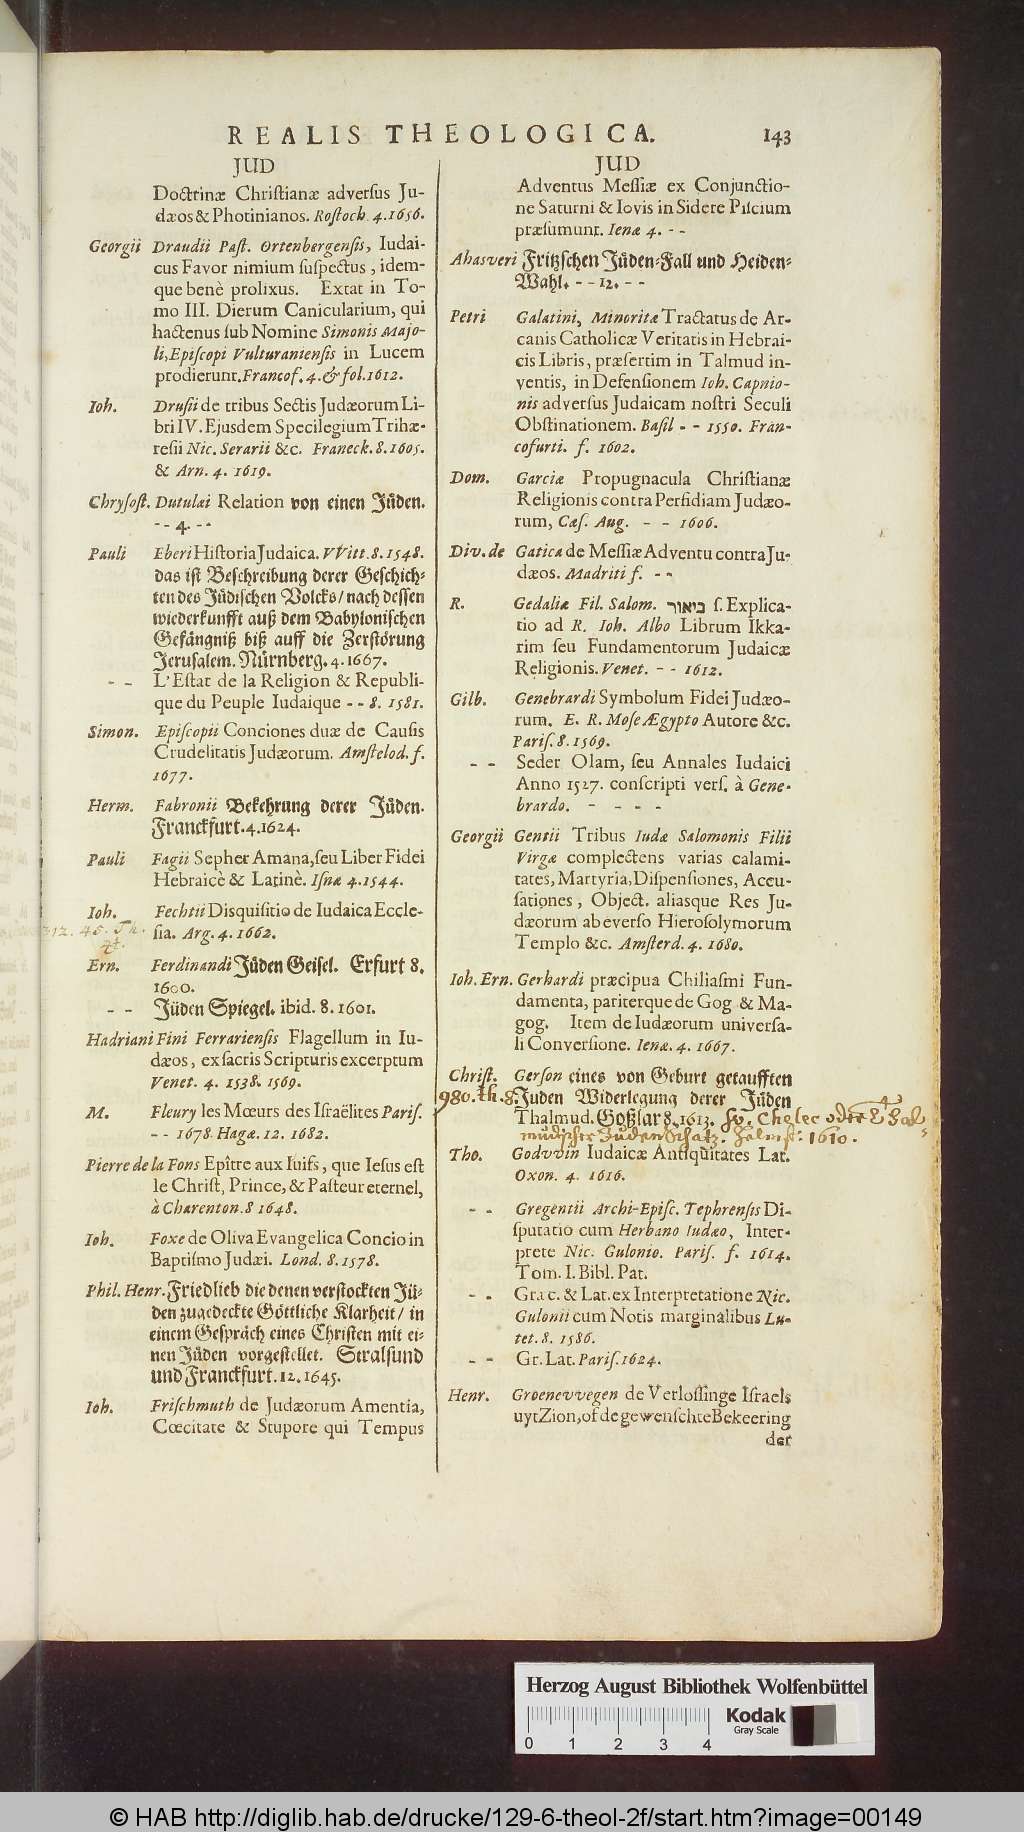 REALIS THEOLOGICA. 143
JUD
Doctrinæ Christianæ adversus Ju-
dæos & Photinianos. Rostoch. 4. 1656.
Georgii Draudii Past. Ortenbergensis, Iudai-
cus Favor nimium suspectus, idem-
que benè prolixus. Extat in To-
mo III. Dierum Canicularium, qui
hactenus sub Nomine Simonis Majo-
li, Episcopi Vulturaniensis in Lucem
prodierunt. Francof. 4. & fol. 1612.
Ioh. Drusii de tribus Sectis Judæorum Li-
bri IV. Ejusdem Specilegium Trihæ-
resii Nic. Serarii &c. Franeck. 8. 1605.
& Arn. 4. 1619.
Chrysost. Dutulæi Relation von einen Jüden.
- - 4. - -
Pauli Eberi Historia Judaica. VVitt. 8. 1548.
das ist Beschreibung derer Geschich-
ten des Jüdischen Volcks / nach dessen
wiederkunfft auß dem Babylonischen
Gefängniß biß auff die Zerstörung
Jerusalem. Nürnberg. 4. 1667.
- - L'Estat de la Religion & Republi-
que du Peuple Iudaique - - 8. 1581.
Simon. Episcopii Conciones duæ de Causis
Crudelitatis Judæorum. Amstelod. f.
1677.
Herm. Fabronii Bekehrung derer Jüden.
Franckfurt. 4. 1624.
Pauli Fagii Sepher Amana, seu Liber Fidei
Hebraicè & Latinè. Isnæ 4. 1544.
Ioh. Fechtii Disquisitio de Iudaica Eccle-
312. 45. Th. sia. Arg. 4. 1662.
4t.
Ern. Ferdinandi Jüden Geisel. Erfurt 8.
1600.
- - Jüden Spiegel. ibid. 8. 1601.
Hadriani Fini Ferrariensis Flagellum in Iu-
dæos, ex sacris Scripturis excerptum
Venet. 4. 1538. 1569.
M. Fleury les Mœurs des Israëlites Paris.
- - 1678. Hagæ. 12. 1682.
Pierre de la Fons Epître aux Iuifs, que Iesus est
le Christ, Prince, & Pasteur eternel,
à Charenton. 8 1648.
Ioh. Foxe de Oliva Evangelica Concio in
Baptismo Judæi. Lond. 8. 1578.
Phil. Henr. Friedlieb die denen verstockten Jü-
den zugedeckte Göttliche Klarheit / in
einem Gespräch eines Christen mit ei-
nen Jüden vorgestellet. Stralsund
und Franckfurt. 12. 1645.
Ioh. Frischmuth de Judæorum Amentia,
Cœcitate & Stupore qui Tempus
JUD
Adventus Messiæ ex Conjunctio-
ne Saturni & Iovis in Sidere Piscium
præsumunt. Ienæ 4. - -
Ahasveri Fritzschen Jüden-Fall und Heiden-
Wahl. - - 12. - -
Petri Galatini, Minoritæ Tractatus de Ar-
canis Catholicæ Veritatis in Hebrai-
cis Libris, præsertim in Talmud in-
ventis, in Defensionem Ioh. Capnio-
nis adversus Judaicam nostri Seculi
Obstinationem. Basil - - 1550. Fran-
cofurti. f. 1602.
Dom. Garciæ Propugnacula Christianæ
Religionis contra Perfidiam Judæo-
rum, Cæs. Aug. - - 1606.
Div. de Gatica de Messiæ Adventu contra Ju-
dæos. Madriti f. - -
R. Gedaliæ Fil. Salom. ביאור s. Explica-
tio ad R. Ioh. Albo Librum Ikka-
rim seu Fundamentorum Judaicæ
Religionis. Venet. - - 1612.
Gilb. Genebrardi Symbolum Fidei Judæo-
rum. E. R. Mose Ægypto Autore &c.
Paris. 8. 1569.
- - Seder Olam, seu Annales Iudaici
Anno 1527. conscripti vers. à Gene-
brardo. - - - -
Georgii Gentii Tribus Iudæ Salomonis Filii
Virgæ complectens varias calami-
tates, Martyria, Dispensiones, Accu-
sationes, Object. aliasque Res Ju-
dæorum ab everso Hierosolymorum
Templo &c. Amsterd. 4. 1680.
Ioh. Ern. Gerhardi præcipua Chiliasmi Fun-
damenta, pariterque de Gog & Ma-
gog. Item de Iudæorum universa-
li Conversione. Ienæ. 4. 1667.
Christ. Gerson eines von Geburt getaufften
980. th. 8. Juden Widerlegung derer Jüden
Thalmud. Goßlar 8. 1613. Chelec oder Tal-
mudischer Judenschatz. Helmst: 1610.
Tho. Godvvin Iudaicæ Antiquitates Lat.
Oxon. 4. 1616.
- - Gregentii Archi-Episc. Tephrensis Di-
sputatio cum Herbano Iudæo, Inter-
prete Nic. Gulonio. Paris. f. 1614.
Tom. I. Bibl. Pat.
- - Græc. & Lat. ex Interpretatione Nic.
Gulonii cum Notis marginalibus Lu-
tet. 8. 1586.
- - Gr. Lat. Paris. 1624.
Henr. Groenevvegen de Verlossinge Israels
uyt Zion, of de gewenschte Bekeering
der
Herzog August Bibliothek Wolfenbüttel
Kodak
Gray Scale
0 1 2 3 4
© HAB http://diglib.hab.de/drucke/129-6-theol-2f/start.htm?image=00149